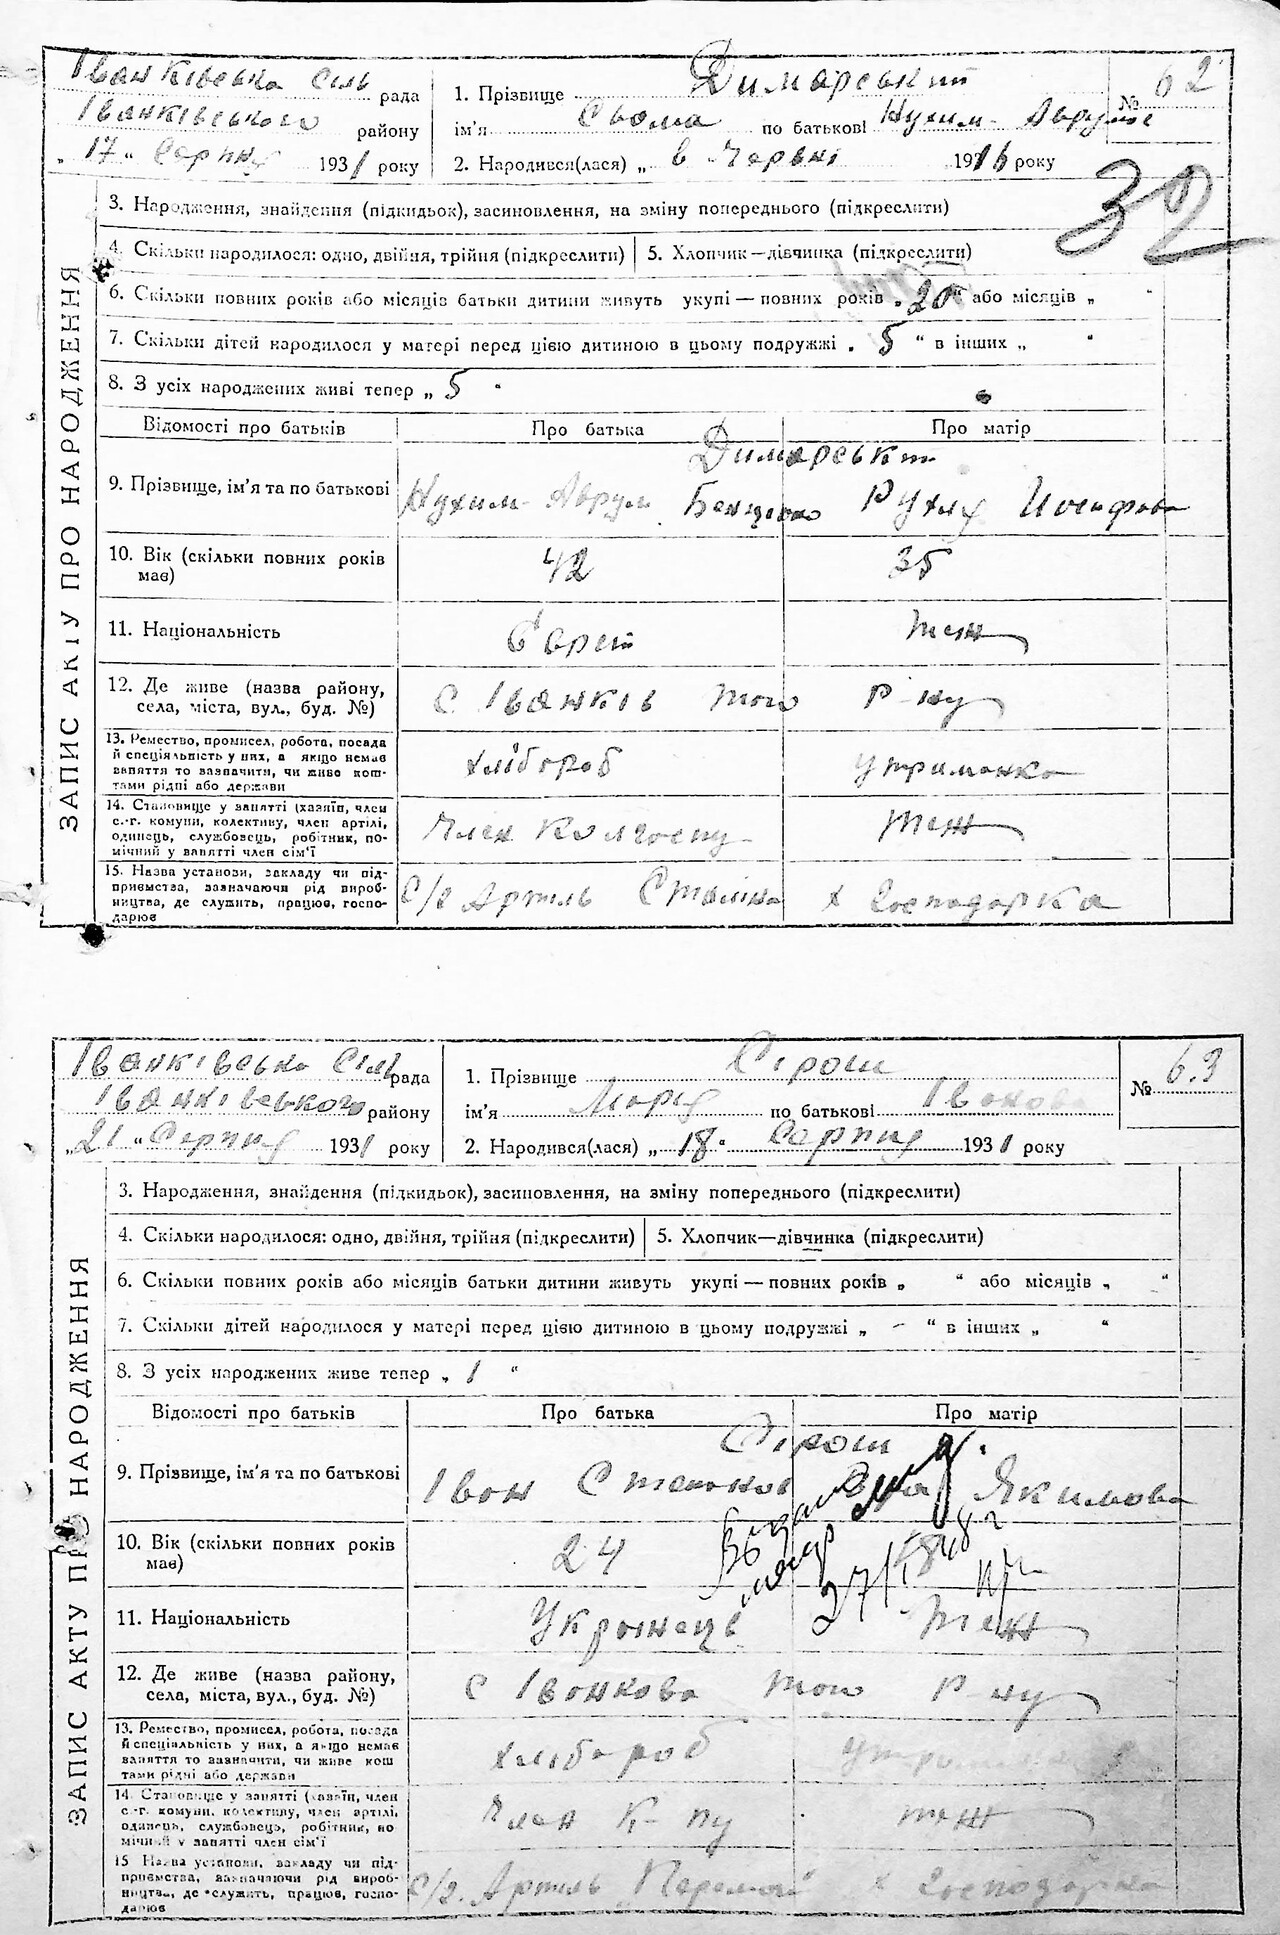 Іванківська Сіль рада
Іванківського району
„ 17 “ Серпня 1931 року
1. Прізвище Димарський
№ 62
ім'я Сьома по батькові Нухим-Аврумов
2. Народився(лася) „ в Червні 1916 року
32
ЗАПИС АКТУ ПРО НАРОДЖЕННЯ
3. Народження, знайдення (підкидьок), засиновлення, на зміну попереднього (підкреслити)
4. Скільки народилося: одно, двійня, трійня (підкреслити) 5. Хлопчик—дівчинка (підкреслити)
6. Скільки повних років або місяців батьки дитини живуть укупі — повних років „ 20 “ або місяців „ “
7. Скільки дітей народилося у матері перед цією дитиною в цьому подружжі „ 5 “ в інших „ “
8. З усіх народжених живі тепер „ 5 “
Відомості про батьків Про батька Про матір
Димарські
9. Прізвище, ім'я та по батькові Нухим-Аврум Бенціоно Рухля Йосифова
10. Вік (скільки повних років має) 42 35
11. Національність Єврей теж
12. Де живе (назва району, села, міста, вул., буд. №) С Іванків того Р-ну
13. Ремество, промисел, робота, посада й спеціяльність у них, а якщо немає заняття то зазначити, чи живе коштами рідні або держави
хлібороб утриманка
14. Становище у занятті (хазяїн, член с.-г. комуни, колективу, член артілі, одинець, службовець, робітник, помічний у занятті член сім'ї
Член Колгоспу теж
15. Назва установи, закладу чи підприємства, зазначаючи рід виробництва, де служить, працює, господарює
С/г Артиль Сталіна х Господарка
Іванківська Сіль рада
Іванківського району
„ 21 “ Серпня 1931 року
1. Прізвище Сірош
№ 63
ім'я Марія по батькові Іванова
2. Народився(лася) „ 18 “ Серпня 1931 року
ЗАПИС АКТУ ПРО НАРОДЖЕННЯ
3. Народження, знайдення (підкидьок), засиновлення, на зміну попереднього (підкреслити)
4. Скільки народилося: одно, двійня, трійня (підкреслити) 5. Хлопчик—дівчинка (підкреслити)
6. Скільки повних років або місяців батьки дитини живуть укупі — повних років „ “ або місяців „ “
7. Скільки дітей народилося у матері перед цією дитиною в цьому подружжі „ - “ в інших „ “
8. З усіх народжених живе тепер „ 1 “
Відомості про батьків Про батька Про матір
Сірош
9. Прізвище, ім'я та по батькові Іван Степанов Якимова
10. Вік (скільки повних років має) 24
27/I 48 г
11. Національність Українець теж
12. Де живе (назва району, села, міста, вул., буд. №) С Іванкова того Р-ну
13. Ремество, промисел, робота, посада й спеціяльність у них, а якщо немає заняття то зазначити, чи живе коштами рідні або держави
хлібороб
14. Становище у занятті (хазяїн, член с.-г. комуни, колективу, член артілі, одинець, службовець, робітник, помічний у занятті член сім'ї
Член К-пу теж
15 Назва установи, закладу чи підприємства, зазначаючи рід виробництва, де служить, працює, господарює
С/г. Артиль х Господарка